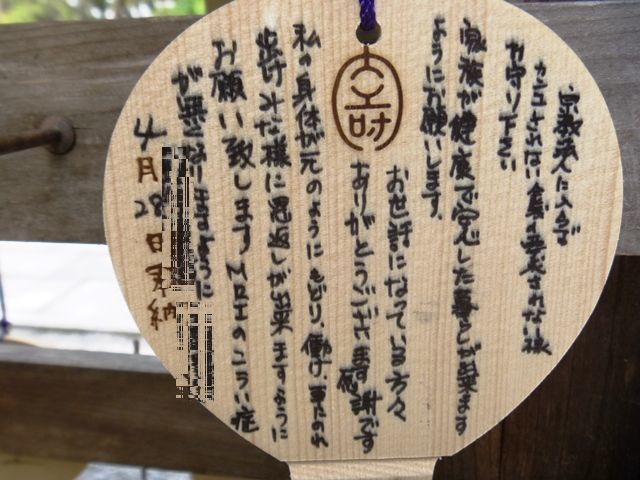 宗教の人に入会で
カンユされない食事要求されない様
お守り下さい
家族が健康で安心した暮らしが出来ます
ようにお願いします。
お世話になっている方々
ありがとうございます感謝です
私の身体が元のようにもどり、働け、車たのれ
歩けみな様に恩返しが出来ますように
お願い致しますMRIのこうい症
が無くなりますように
4月28日奉納